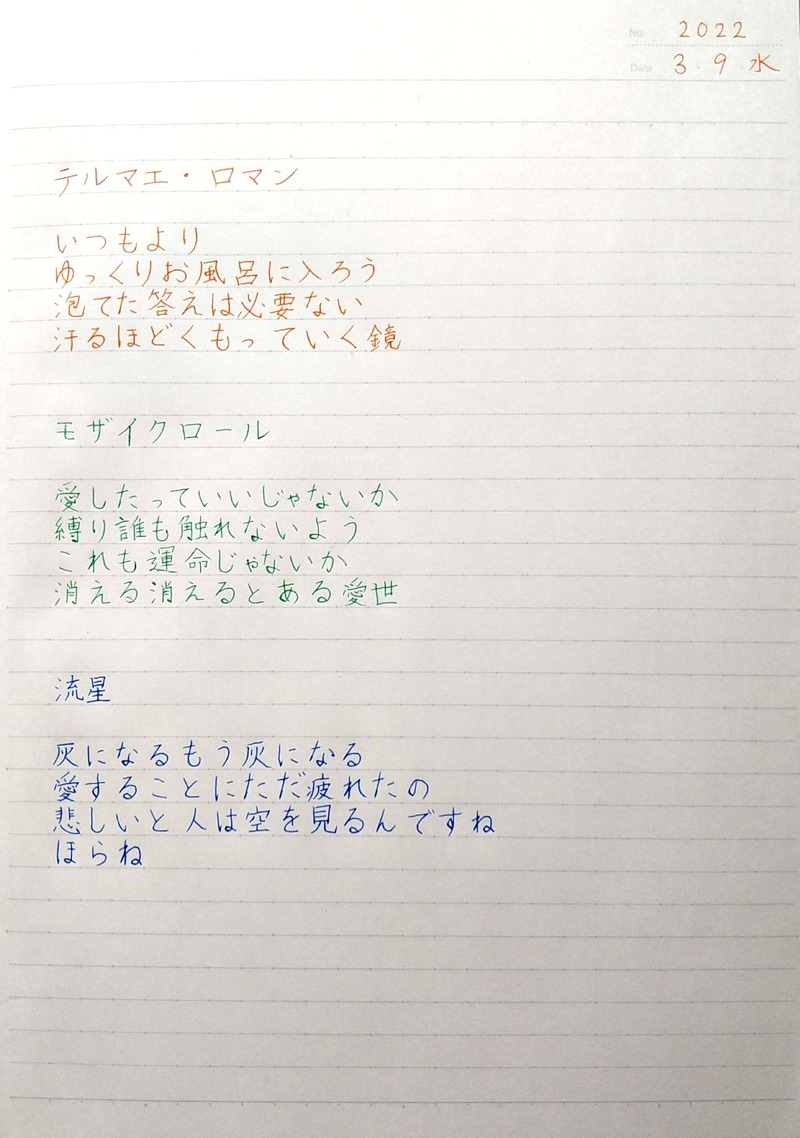 No. 2022
Date 3・9 水
テルマエ・ロマン
いつもより
ゆっくりお風呂に入ろう
泡てた答えは必要ない
汗るほどくもっていく鏡
モザイクロール
愛したっていいじゃないか
縛り誰も触れないよう
これも運命じゃないか
消える消えるとある愛世
流星
灰になるもう灰になる
愛することにただ疲れたの
悲しいと人は空を見るんですね
ほらね